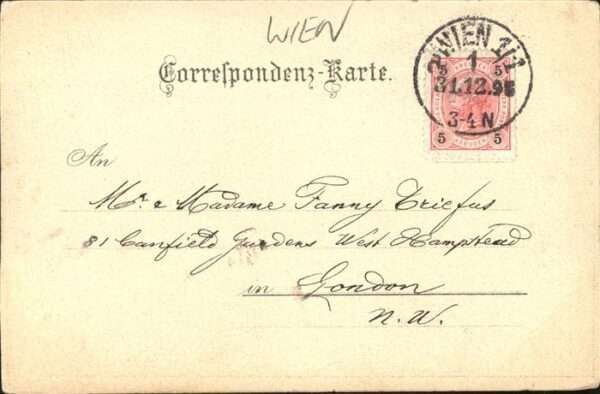 WIEN
Correspondenz-Karte.
WIEN 1/1
1
31.12.98
3-4 N
5 5
5 5
An
Mr. & Madame Fanny Triefus
81 Canfield Gardens West Hampstead
in London
N.W.